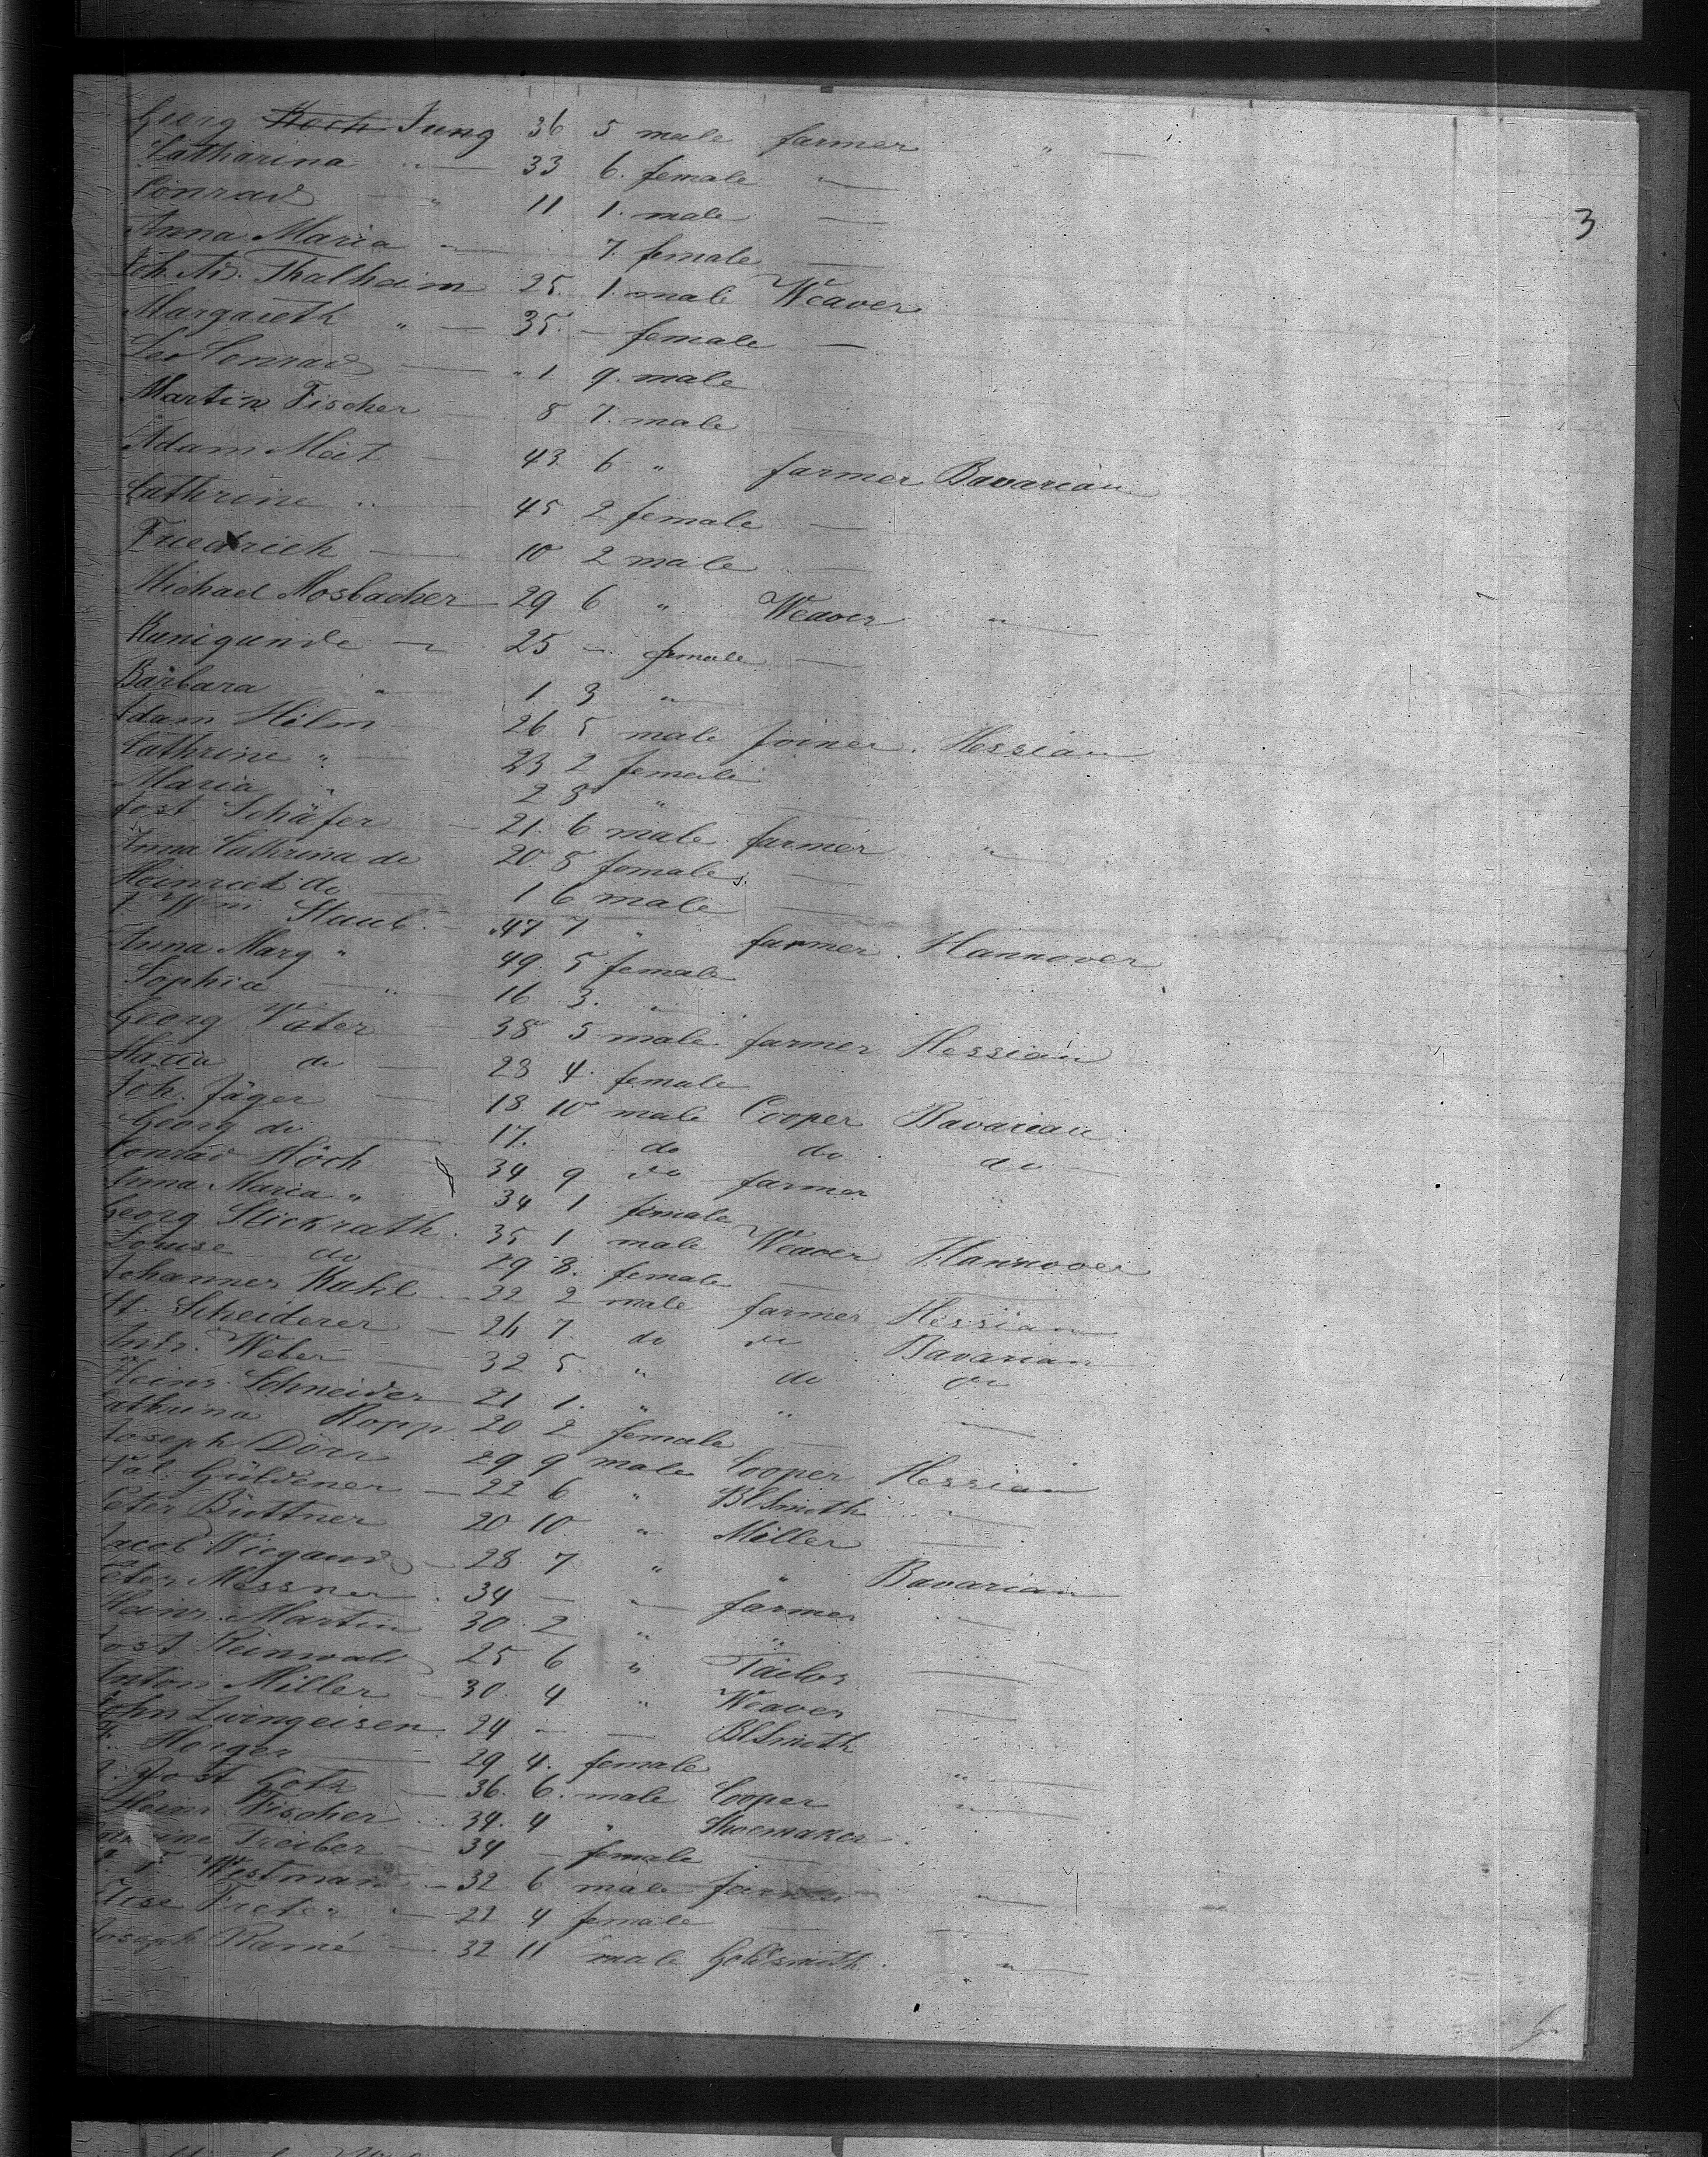 Georg Hoch Jung 36 5 male farmer " —
Catharina " — 33 6. female —
Conrad — " 11 1. male —
Anna Maria — 7. female —
Joh. Ad. Thalheim 25. 1. male Weaver
Margareth " — 35. — female —
Leo Conrad — " 1 9. male
Martin Fischer — 8 7. male —
Adam Meit — 43. 6 " farmer Bavarian
Cathrine " — 45 2 female —
Friedrich — 10 2 male —
Michael Mosbacher — 29 6 " Weaver " —
Kunigunde — 25 — female —
Barbara " 1 3 "
Adam Hilm — 26 5 male Joiner. Hessian
Cathrine " — 23 2 female
Maria " 2 8 " —
Jost Schäfer — 21. 6 male farmer " —
Anna Cathrina do 20 8 female —
Heinrich do — 1 6 male —
Staub. — 47 7 " farmer. Hannover
Anna Marg " — 49 5 female
Sophia — " — 16 3. "
Georg Vater — 38 5 male farmer Hessian
Maria do — 28 4. female
Joh. Jäger — 18 10 male Cooper Bavarian
Georg do — 17. do do do —
Conrad Höch 34 9 do farmer
Anna Maria " 34 1 female
Georg Stickrath. 35 1 male Weaver Hannover
Louise do 29 8. female —
Johannes Kahl — 22 2 male farmer Hessian
St. Scheiderer — 26 7. do do Bavarian
Andr. Weber — 32 5. " do do
Heinr. Schneider 21 1. " " —
Cathrina Kopp. 20 2 female —
Joseph Dörr 29 9 male Cooper Hessian
Val. Güldener — 22 6 " BlSmith " —
Peter Büttner 20 10. " Miller —
Jacob Wiegand — 28. 7 " " Bavarian
Peter Messner. 34 — " farmer —
Heinr. Martin 30. 2 " "
Jost Reinwald 25 6 " Tailor —
Anton Miller — 30. 4 " Weaver —
John Zwingeisen. 24 — — BlSmith
Hoeger — 29 4. female " —
Jost Götz — 36. 6. male Cooper " —
Heinr Fischer . 34. 4 " Shoemaker.
Treiber — 34 — female —
Westman — 32 6 male farmer " —
22 4 female — —
Joseph Ramé — 32 11 male Goldsmith. " —
3